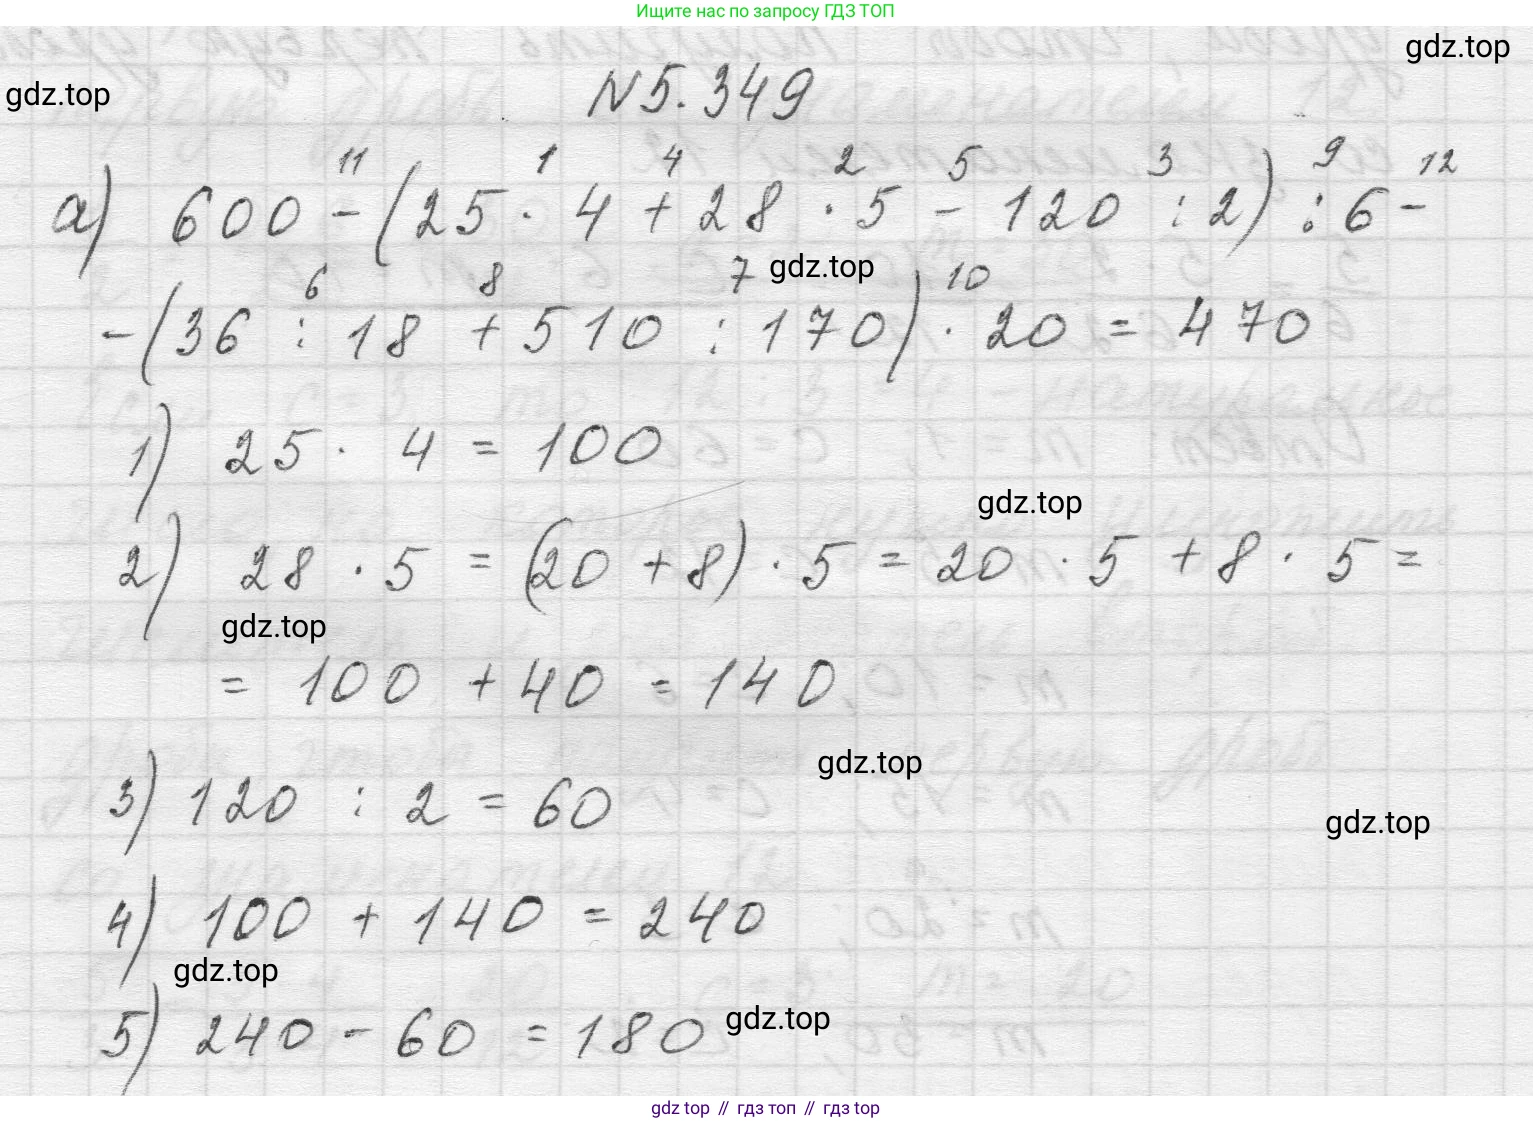 Ищите нас по запросу ГДЗ ТОП
gdz.top
gdz.top
N 5.349
11 1 4 2 5 3 9 12
а) 600 - (25 · 4 + 28 · 5 - 120 : 2) : 6 -
gdz.top
6 8 7 10
- (36 : 18 + 510 : 170) · 20 = 470
1) 25 · 4 = 100
gdz.top
2) 28 · 5 = (20 + 8) · 5 = 20 · 5 + 8 · 5 =
gdz.top
= 100 + 40 = 140
gdz.top
3) 120 : 2 = 60
gdz.top
4) 100 + 140 = 240
gdz.top
5) 240 - 60 = 180
gdz.top
gdz top // гдз топ // гдз top